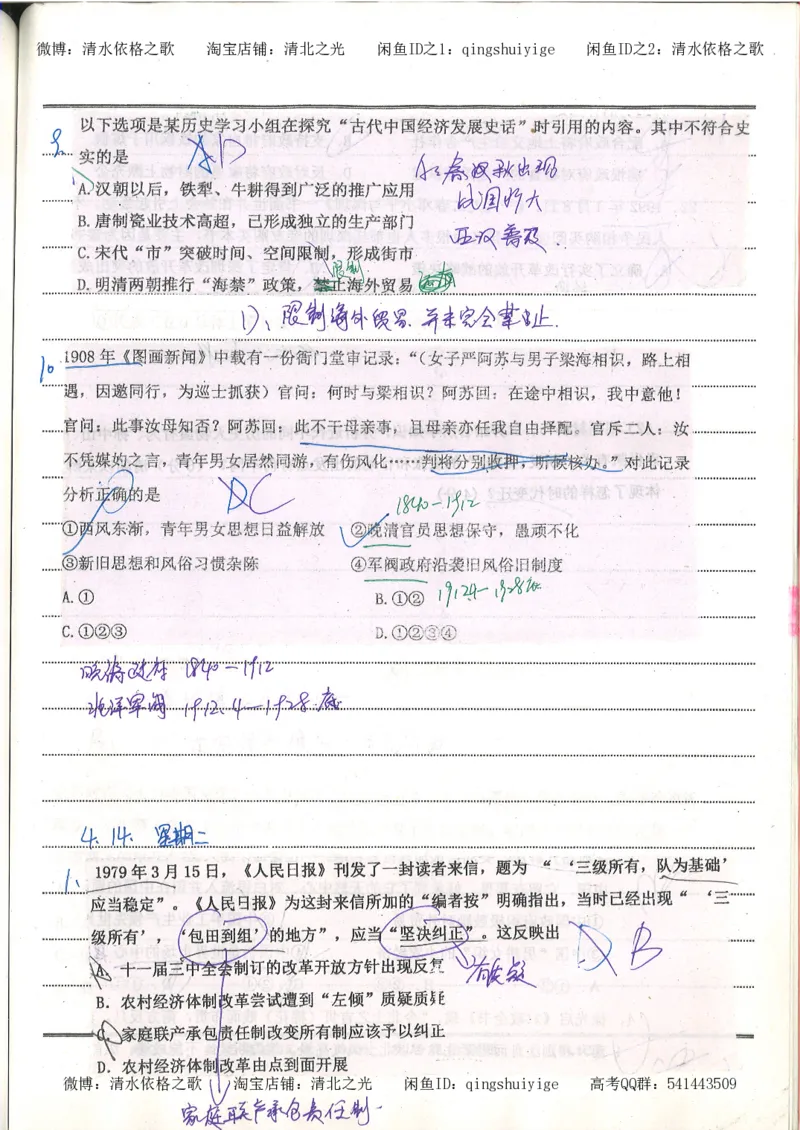 微博：清水依格之歌 淘宝店铺：清北之光 闲鱼ID之1：qingshuiyige 闲鱼ID之2：清水依格之歌
9. 以下选项是某历史学习小组在探究“古代中国经济发展史话”时引用的内容。其中不符合史
实的是 A D
A. 汉朝以后，铁犁、牛耕得到广泛的推广应用
B. 唐制瓷业技术高超，已形成独立的生产部门
C. 宋代“市”突破时间、空间限制，形成街市
D. 明清两朝推行“海禁”政策，禁止海外贸易
A、春秋出现
战国扩大
两汉普及
限制
D、限制海外贸易 并未完全禁止.
10 1908 年《图画新闻》中载有一份衙门堂审记录：“（女子严阿苏与男子梁海相识，路上相
遇，因邀同行，为巡士抓获）官问：何时与梁相识？阿苏回：在途中相识，我中意他！
官问：此事汝母知否？阿苏回：此不干母亲事，且母亲亦任我自由择配。官斥二人：汝
不凭媒妁之言，青年男女居然同游，有伤风化……判将分别收押，听候核办。”对此记录
分析正确的是 D C
1840-1912
①西风东渐，青年男女思想日益解放 ②晚清官员思想保守，愚顽不化
③新旧思想和风俗习惯杂陈 ④军阀政府沿袭旧风俗旧制度
A.① B.①② 1912.4-1928底
C.①②③ D.①②③④
晚清政府 1840-1912
北洋军阀 1912.4-1928.底
4.14. 星期二
1. 1979 年 3 月 15 日，《人民日报》刊发了一封读者来信，题为 “‘三级所有，队为基础’
应当稳定”。《人民日报》为这封来信所加的“编者按”明确指出，当时已经出现 “‘三
级所有’，‘包田到组’的地方”，应当“坚决纠正”。这反映出 D B
A. 十一届三中全会制订的改革开放方针出现反复
B. 农村经济体制改革尝试遭到“左倾”质疑质疑
C. 家庭联产承包责任制改变所有制应该予以纠正
D. 农村经济体制改革由点到面开展
微博：清水依格之歌 淘宝店铺：清北之光 闲鱼ID：qingshuiyige 高考QQ群：541443509
家庭联产承包责任制